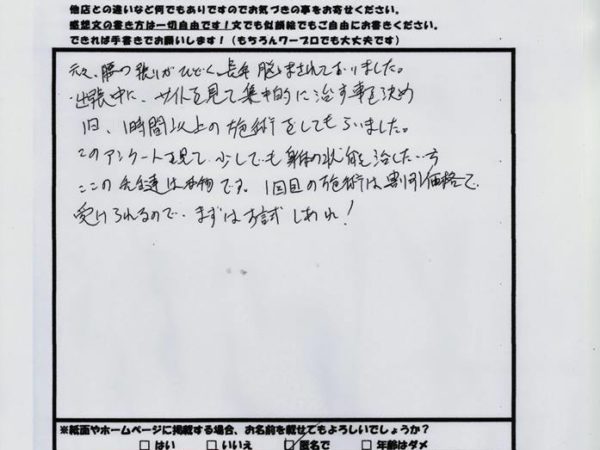 他店との違いなど何でもありますのでお気づきの事をお寄せください。
感想文の書き方は一切自由です！文でも似顔絵でもご自由にお書きください。
できれば手書きでお願いします！（もちろんワープロでも大丈夫です）
元々、腰の張りがひどく、長年 悩まされておりました。
出張中に、サイトを見て集中的に治す事を決め
1日、1時間以上の施術をしてもらいました。
このアンケートを見て、少しでも身体の状態を治したい方
ここの先生達は本物です。1回目の施術は割引価格で
受けられるので、まずはお試しあれ！
※紙面やホームページに掲載する場合、お名前を載せてもよろしいでしょうか？
□ はい □ いいえ ☑ 匿名で □ 年齢はダメ